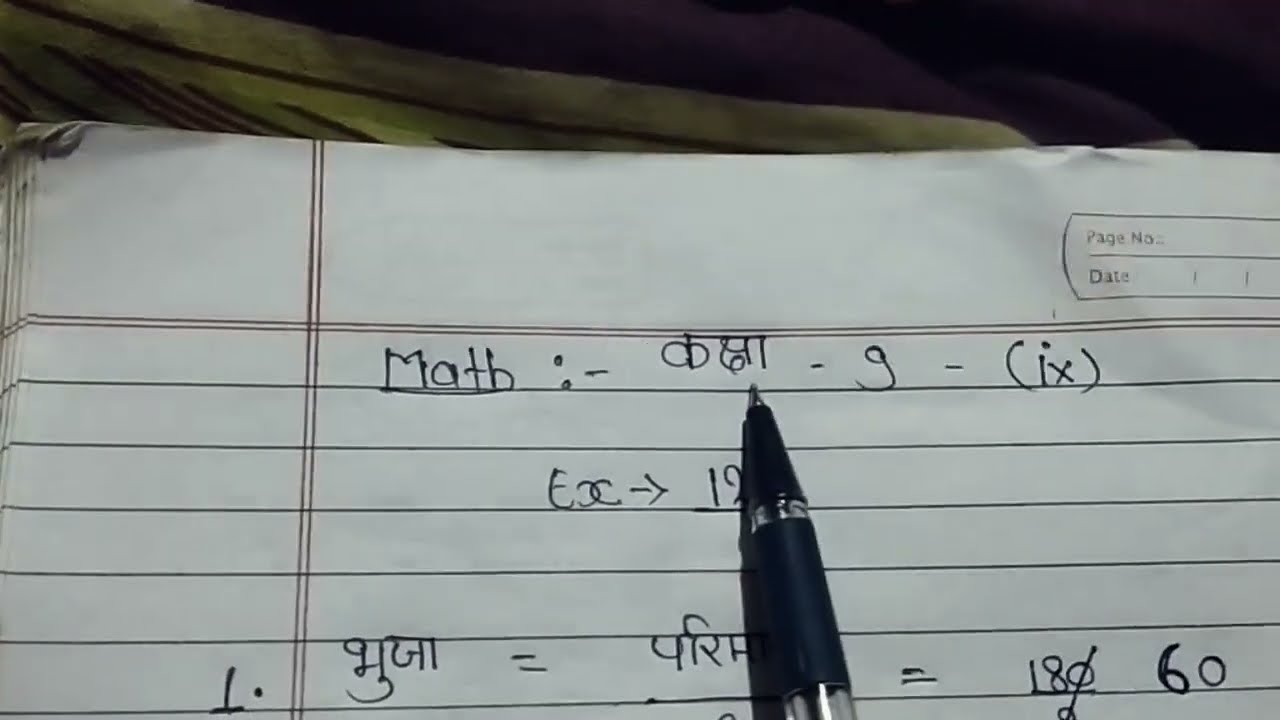 Page No.:
Date
Math :- कक्षा - 9 - (ix)
Ex →
1. भुजा = = 180 60